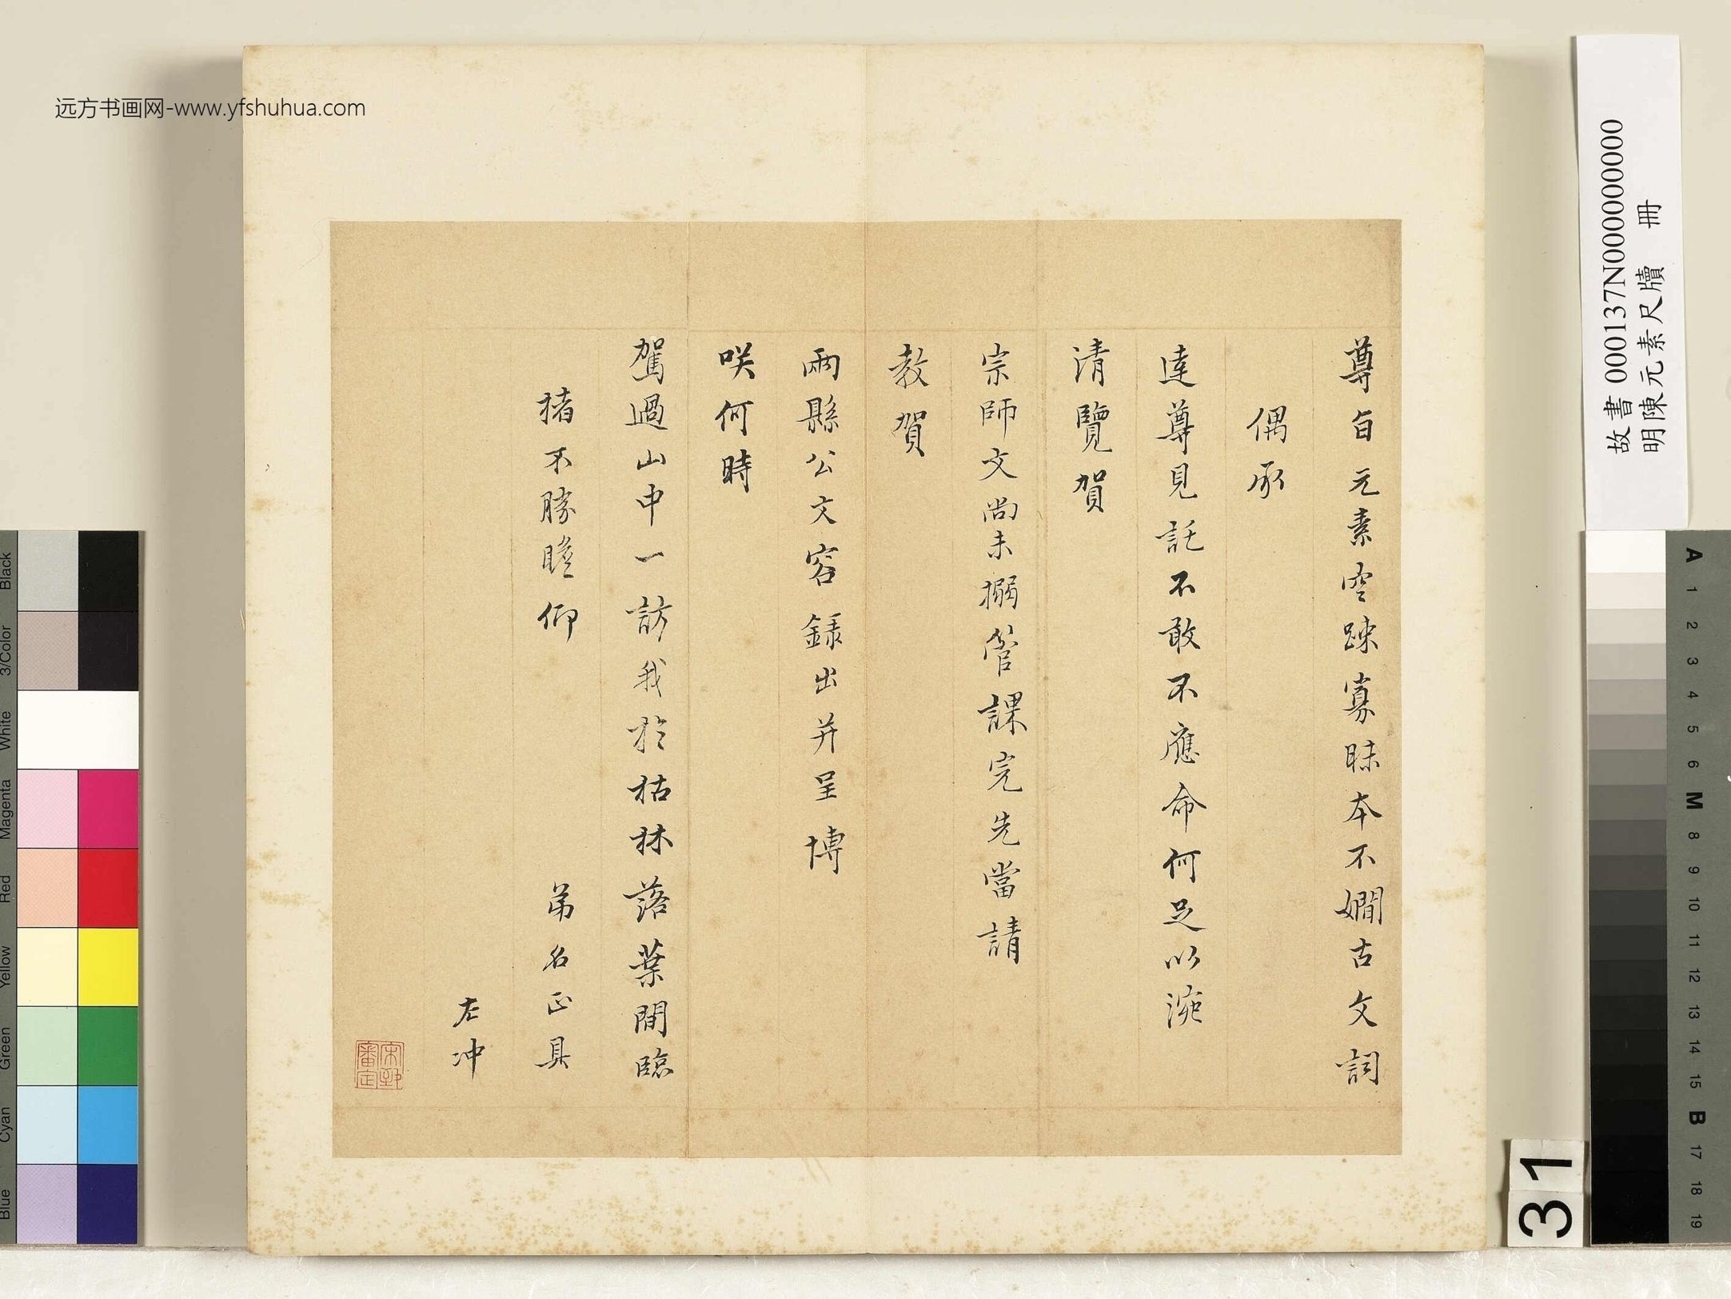 尊旨元素空踈寡昧本不嫺古文詞
偶承
達尊見託不敢不應命何足以涴
清覽賀
宗師文尚未搦管課完先當請
教賀
兩縣公文容錄出并呈博
咲何時
駕過山中一訪我於枯林落葉間臨
楮不勝瞻仰
弟名正具
左冲
远方书画网-www.yfshuhua.com
故書 000137N000000000
明陳元素尺牘 冊
31
Black
3/Color
White
Magenta
Red
Yellow
Green
Cyan
Blue
A
1
2
3
4
5
6
M
8
9
10
11
12
13
14
15
B
17
18
19